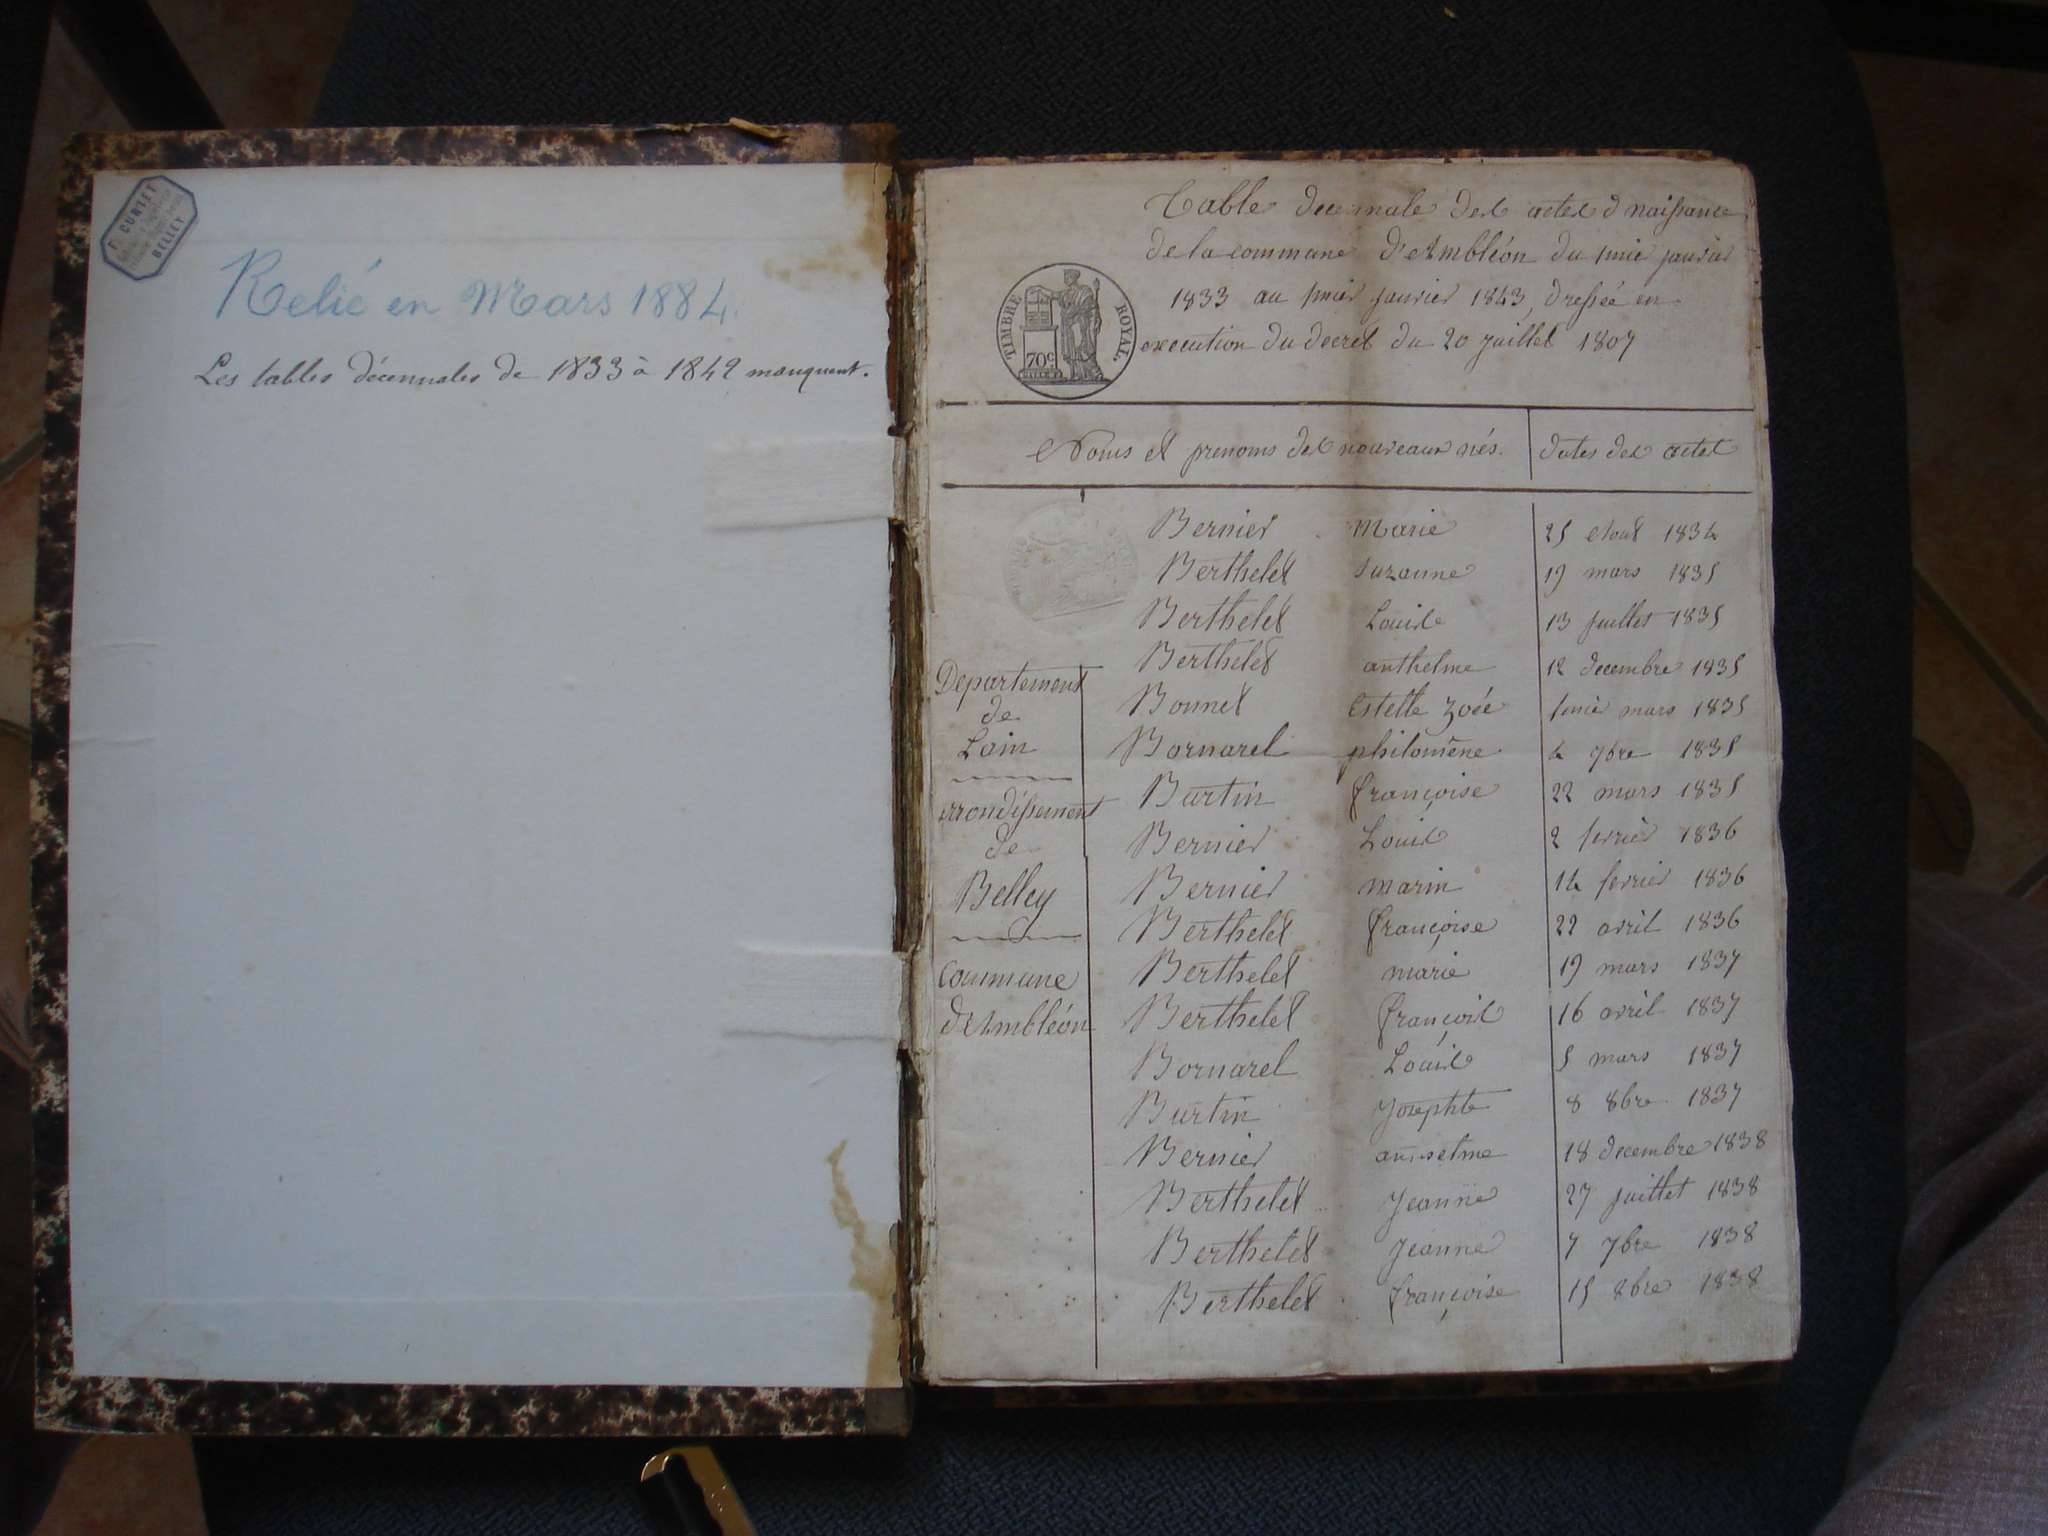 F. CURTET
BELLEY
Relié en Mars 1884.
Les tables décennales de 1833 à 1842 manquent.
Table decennale des actes d naissance
de la commune d'Ambléon du 1mier janvier
1833 au 1mier janvier 1843, dressée en
execution du decret du 20 juillet 1807
TIMBRE ROYAL.
70c
Noms et prenoms des nouveaux nés. dates des actes
Departement
de
Lain
arrondissement
de
Belley
commune
d'Ambléon
Bernier Marie 25 Aout 1834
Berthelet Suzanne 19 mars 1835
Berthelet Louise 13 juillet 1835
Berthelet anthelme 12 decembre 1835
Bonnet Estelle Zoée 1mier mars 1835
Bornarel philomène 4 7bre 1835
Burtin françoise 22 mars 1835
Bernier Louis 2 fevrier 1836
Bernier marin 14 fevrier 1836
Berthelet françoise 22 avril 1836
Berthelet marie 19 mars 1837
Berthelet françois 16 avril 1837
Bornarel Louise 5 mars 1837
Burtin Josephte 8 8bre 1837
Bernier anselme 18 decembre 1838
Berthelet Jeanne 27 juillet 1838
Berthelet Jeanne 7 7bre 1838
Berthelet françoise 15 8bre 1838